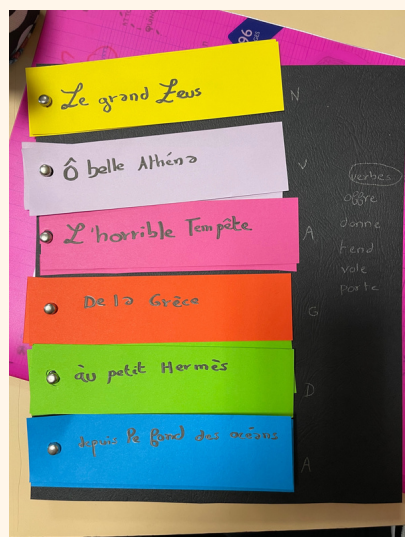 96
Le grand Zeus
N
Ô belle Athéna
V
L'horrible Tempête
A
De la Grèce
G
àu petit Hermès
D
depuis le fond des océans
A
verbes
offre
donne
tend
vole
porte